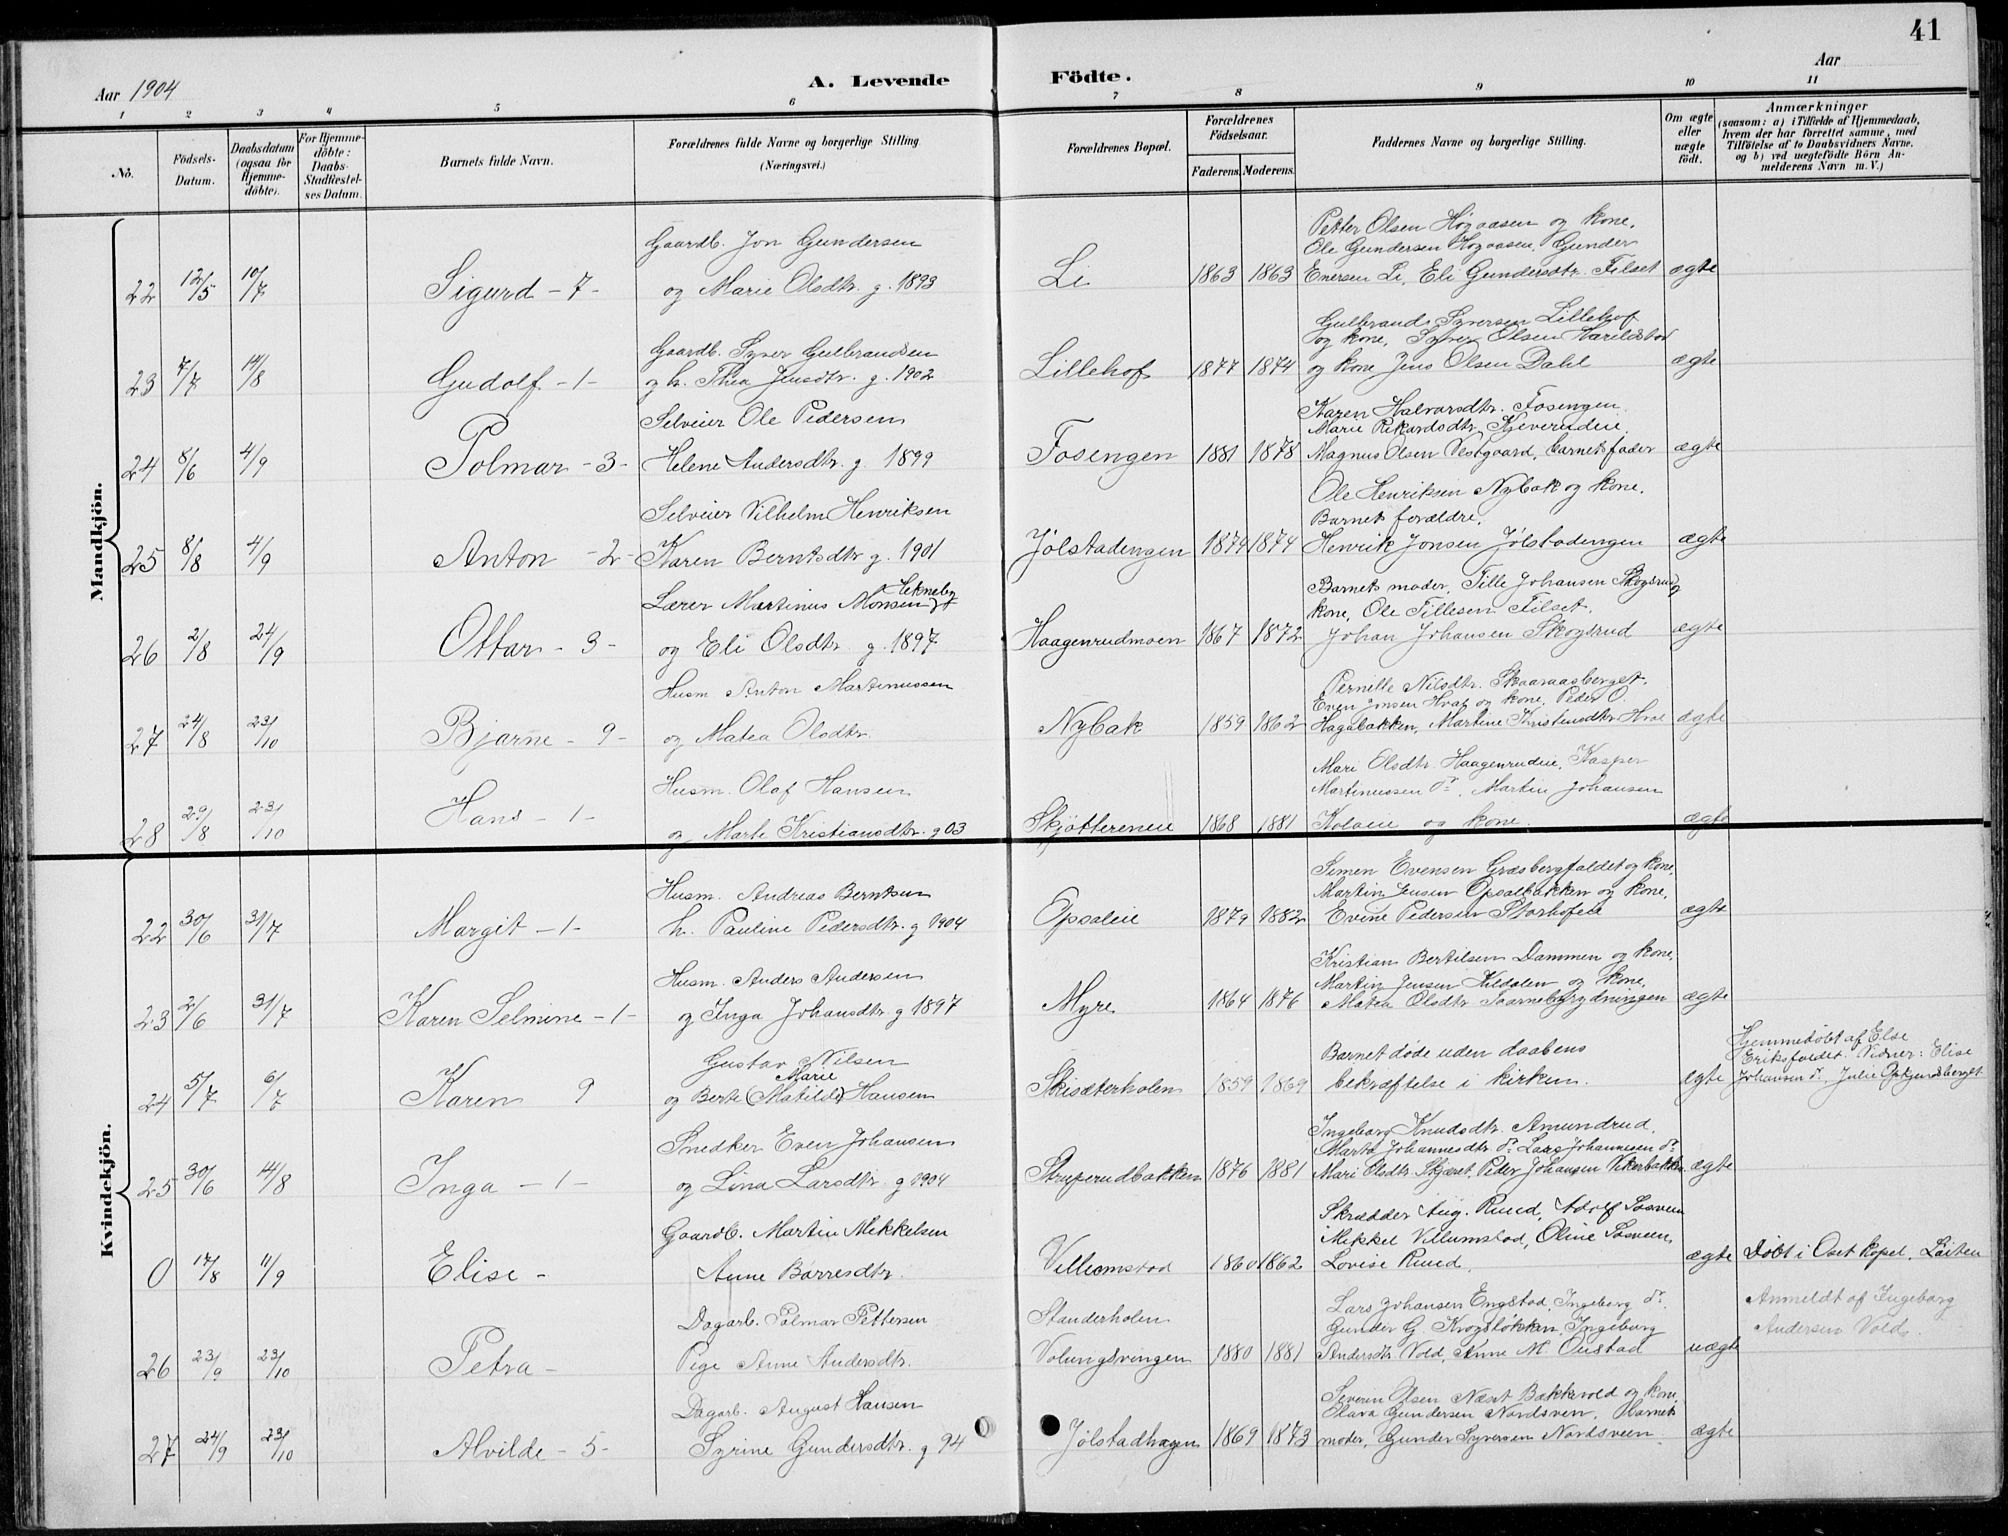 41
Aar 1904
A. Levende Födte.
Aar
1 2 3 4 5 6 7 8 9 10 11
No.
Födsels-Datum.
Daabsdatum (ogsaa for Hjemme-döbte).
For Hjemme-döbte: Daabs-Stadfæstel-ses Datum.
Barnets fulde Navn.
Forældrenes fulde Navne og borgerlige Stilling (Næringsvei.)
Forældrenes Bopæl.
Forældrenes Födselsaar.
Faderens. Moderens.
Faddernes Navne og borgerlige Stilling.
Om ægte eller uægte födt.
Anmærkninger
(saasom: a) i Tilfælde af Hjemmedaab, hvem der har forrettet samme, med Tilföielse af to Daabsvidners Navne, og b) ved uegtefödte Börn An-melderens Navn m. V.)
Mandkjön.
Petter Olsen Høgaasen og kone,
Gaardb. Jon Gundersen
Ole Gundersen Høgaasen, Gunder
22 12/5 10/7 Sigurd - 7 - og Marie Olsdtr. g. 1893 Li 1863 1863 Enersen Li, Eli Gundersdtr. Filset ægte
Gulbrand Syversen Lillehof
Gaardb. Syver Gulbrandsen
og kone, Syver Olsen Harildstad
23 7/7 14/8 Gudolf - 1 - og h. Thea Jensdtr. g. 1902 Lillehof 1877 1874 og kone Jens Olsen Dahl ægte
Karen Halvorsdtr. Fosengen
Selveier Ole Pedersen
Marie Rikardsdtr. Kjeverudeie
24 8/6 4/9 Polmar - 3 - Helene Andersdtr. g. 1899 Fosengen 1881 1878 Magnus Olsen Vestgaard, barnets fader ægte
Ole Henriksen Nybak og kone.
Selveier Vilhelm Henriksen
Barnets forældre,
25 8/8 4/9 Anton - 2 - Karen Berntsdtr g. 1901 Jølstadengen 1874 1874 Henrik Jonsen Jølstadengen ægte
Barnets moder, Tille Johansen Skogsrud og
Lærer Martinus Monsen
kone, Ole Tillesen Filset,
26 2/8 24/9 Ottar - 3 - og Eli Olsdtr. g. 1897 Haagenrudmoen 1867 1872 Johan Johansen Skogsrud ægte
Pernille Nilsdtr. Skaaraasberget,
Husm Anton Martinussen
Even Jonsen Hval og kone, Peder O.
27 24/8 23/10 Bjarne - 9 - og Matea Olsdtr. Nybak 1859 1862 Hagabakken, Martine Kristensdtr. ægte
Mari Olsdtr. Haagenrudeie, Kasper
Husm. Olaf Hansen
Martinussen dr., Martin Johansen
28 29/8 23/10 Hans - 1 - og Marte Kristiansdtr. g 03 Skjøttereneie 1868 1881 og kone. ægte
Kvindekjön.
Simen Evensen Græsbergfaldet og kone,
Husm. Andreas Berntsen
Martin Jensen Opsalbakken og kone,
22 30/6 31/7 Margit - 1 - h. Pauline Pedersdtr. g 1904 Opsaleie 1879 1882 Evine Pedersen Storhofeie ægte
Kristian Bertilsen Dammen og kone,
Husm. Anders Andersen
Martin Jensen Kildalen og kone,
23 2/6 31/7 Karen Selmine - 1 - og Inga Johansdtr g 1897 Myre 1864 1876 Matea Olsdtr ægte
Gustav Nilsen
Barnet døde uden daabens
Hjemmedöbt af Else
Eriksfaldet. Vidner: Elise
Marie
24 5/7 6/7 Karen 9 og Berte (Matilde) Hansen Skisæterholen 1859 1869 bekræftelse i kirken. ægte Johansen dr. Julie Opkjørnsberget
Ingeborg Knudsdtr. Amundrud,
Snedker Even Johansen
Marta Johannesdtr dr. Lars Johannesen dr.
25 30/6 14/8 Inga - 1 - og Lina Larsdtr. g 1904 Struperudbakken 1876 1881 Mari Olsdtr. Skjæret, Peder Johansen Vikerbakken ægte
Skrædder Aug. Ruud, Adolf Sosveen
Gaardb. Martin Mikkelsen
Mikkel Villumstad, Oline Sosveen,
0 17/8 11/9 Elise - Anne Borresdtr. Villumstad 1860 1862 Lovise Ruud, ægte Döbt i Oset kapel, Løiten
Dagarb. Palmar Pettersen Standerholen
Lars Johansen Engstad, Ingeborg dr.
Anmeldt af Ingeborg
Gunder G Krogsløkken, Ingeborg
Andersen Vold.
26 23/9 23/10 Petra - Pige Anne Andersdtr. Volungsvingen 1880 1881 Andersdtr. Vold, Anne M. Oustad uægte
Severin Olsen Næset Bakkevold og kone
Dagarb. August Hansen
Olava Gundersen Nordsven, Barnets
27 24/9 23/10 Alvilde - 5 - Syrine Gundersdtr. g 94 Jølstadhagen 1869 1873 moder, Gunder Syversen Nordsveen ægte